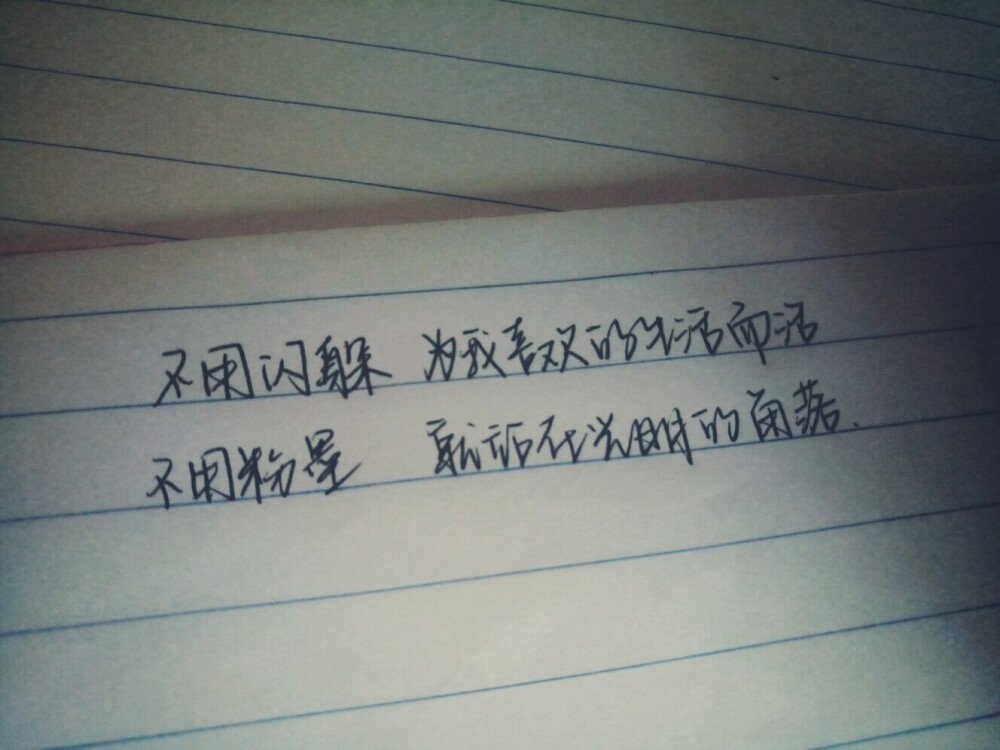 不用闪躲 为我喜欢的生活而活
不用粉墨 就站在光明的角落.